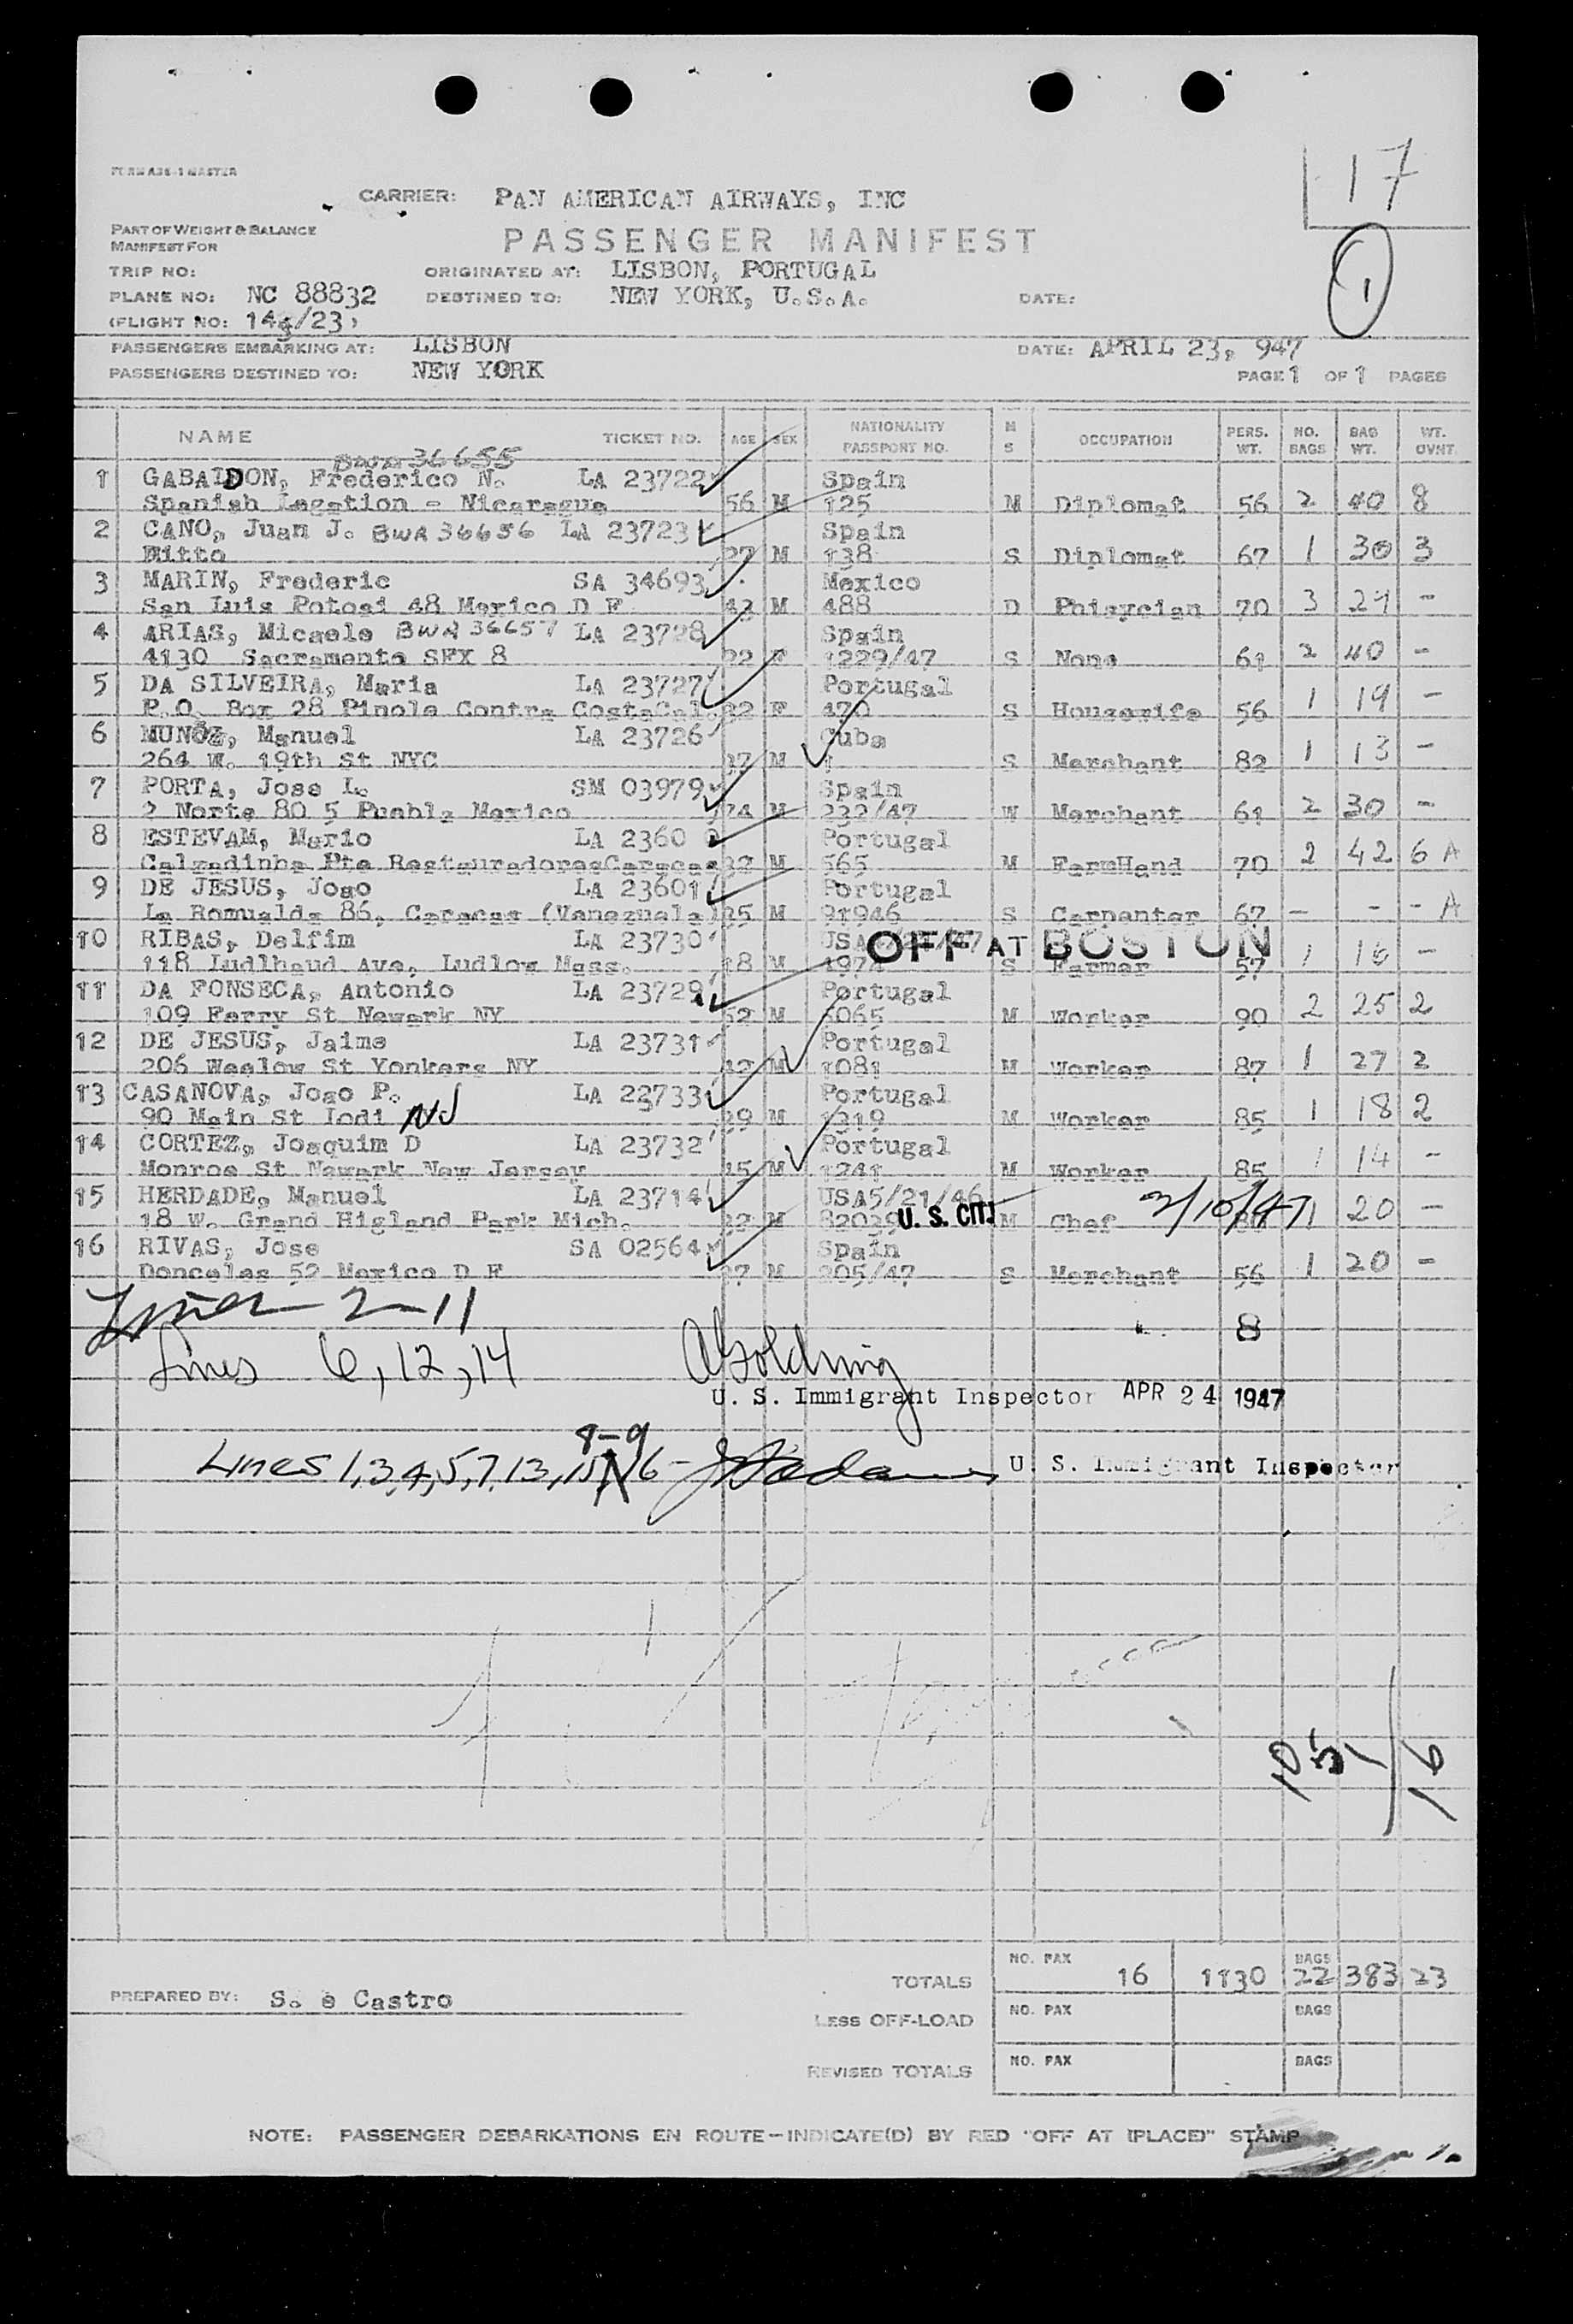 FORM A36-1 MASTER
17
CARRIER: PAN AMERICAN AIRWAYS, INC
PART OF WEIGHT & BALANCE
MANIFEST FOR
PASSENGER MANIFEST
1
TRIP NO: ORIGINATED AT: LISBON, PORTUGAL
PLANE NO: NC 88832 DESTINED TO: NEW YORK, U.S.A. DATE:
(FLIGHT NO: /23)
PASSENGERS EMBARKING AT: LISBON DATE: APRIL 23, 947
PASSENGERS DESTINED TO: NEW YORK PAGE 1 OF 1 PAGES
NAME TICKET NO. AGE SEX NATIONALITY PASSPORT NO. M S OCCUPATION PERS. WT. NO. BAGS BAG WT. WT. OVNT.
BWA 36655
1 GABALDON, Frederico N. LA 23722 Spain
Spanish Legation - Nicaragua 56 M 125 M Diplomat 56 2 40 8
2 CANO, Juan J. BWA 36656 LA 23723 Spain
Ditto 27 M 138 S Diplomat 67 1 30 3
3 MARIN, Frederic SA 34693 Mexico
San Luis Potosi 48 Mexico D F 43 M 488 D Phisycian 70 3 29 -
4 ARIAS, Micaele BWA 36657 LA 23728 Spain
4130 Sacramento SFX 8 22 F 1229/47 S None 61 2 40 -
5 DA SILVEIRA, Maria LA 23727 Portugal
P.O. Box 28 Pinole Contra CostaCal. 32 F 470 S Housewife 56 1 19 -
6 MUNOZ, Manuel LA 23726 Cuba
264 W. 19th St NYC 37 M 1 S Merchant 82 1 13 -
7 PORTA, Jose L. SM 03979 Spain
2 Norte 80 5 Puebla Mexico 74 M 232/47 W Merchant 61 2 30 -
8 ESTEVAM, Mario LA 2360 Portugal
Calzadinha Pte RestauradoresCaracas 32 M 565 M FarmHand 70 2 42 6 A
9 DE JESUS, Joao LA 23601 Portugal
La Romualda 86, Caracas (Venezuela) 35 M 91946 S Carpenter 67 - - - A
10 RIBAS, Delfim LA 23730 USA OFF AT BOSTON
118 Ludlhaud Ave, Ludlow Mass. 18 M 1974 S Farmer 57 1 16 -
11 DA FONSECA, Antonio LA 23729 Portugal
109 Ferry St Newark NY 52 M 6065 M Worker 90 2 25 2
12 DE JESUS, Jaime LA 23731 Portugal
206 Weslow St Yonkers NY 42 M 1081 M Worker 87 1 27 2
13 CASANOVA, Joao P. LA 23733 Portugal
90 Main St Lodi NJ 39 M 1319 M Worker 85 1 18 2
14 CORTEZ, Joaquim D LA 23732 Portugal
Monroe St Newark New Jersey 45 M 1241 M Worker 85 1 14 -
15 HERDADE, Manuel LA 23714 USA5/21/46
18 W. Grand Higland Park Mich. 32 M 82039 U. S. CIT. M Chef 2/10/47 80 1 20 -
16 RIVAS, Jose SA 02564 Spain
Donceles 52 Mexico D F 37 M 205/47 S Merchant 56 1 20 -
2-11
8
Lines 6, 12, 14 AGolding
U. S. Immigrant Inspector APR 24 1947
8-9
Lines 1,3,4,5,7,13,15,16- U. S. Immigrant Inspector
16
TOTALS NO. PAX 16 1130 BAGS 22 383 23
PREPARED BY: S. e Castro
LESS OFF-LOAD NO. PAX BAGS
REVISED TOTALS NO. PAX BAGS
NOTE: PASSENGER DEBARKATIONS EN ROUTE-INDICATE(D) BY RED "OFF AT (PLACE)" STAMP